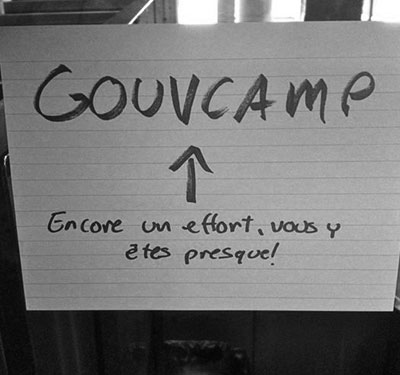 GOUVCAMP
Encore un effort, vous y
êtes presque!